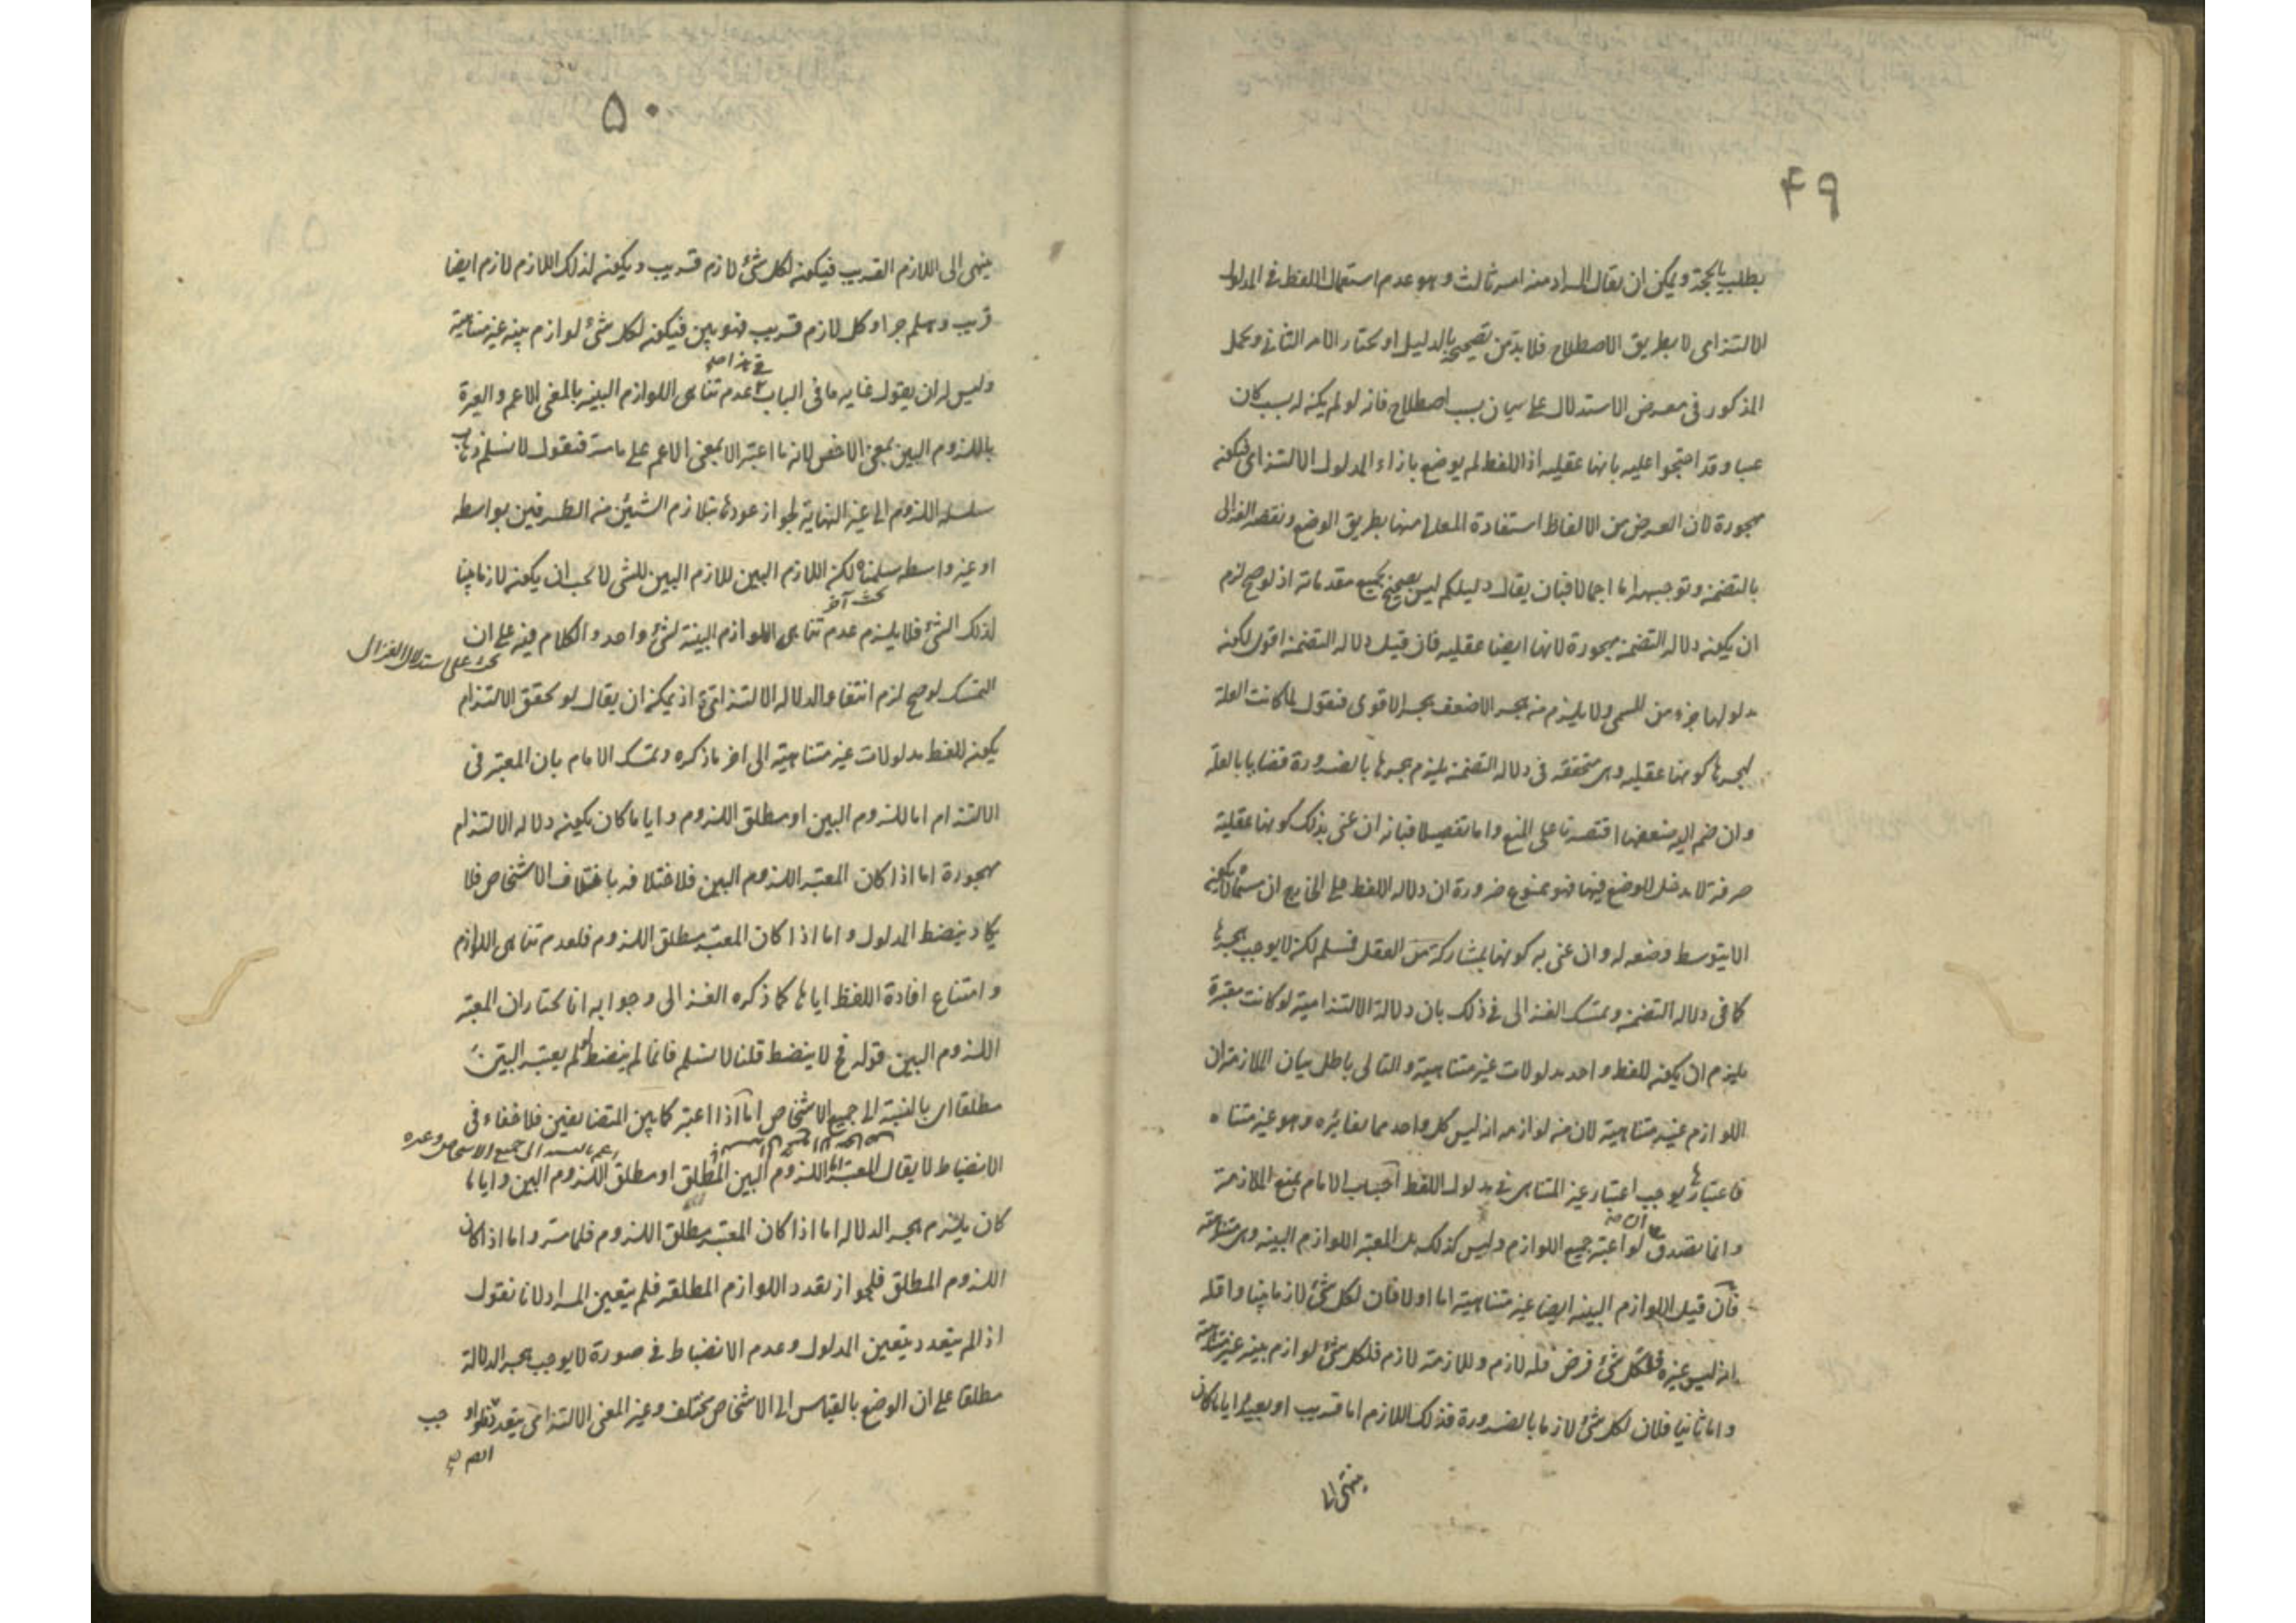 ۴۹
يطلب بالحجة ويمكن ان يقال المراد منه امر ثالث وهو عدم استعمال اللفظ فى المدلول
الالتزامى لا بطريق الاصطلاح فلا بد من تصحيحه بالدليل او نختار الامر الثانى ونحمل
المذكور فى معرض الاستدلال على بيان سبب اصطلاح فانه لو لم يكن له سبب كان
عبثا وقد احتجوا عليه بانها عقليه اذ اللفظ لم يوضع بازاء المدلول الالتزامى فيكون
مهجورة لان الغرض من الالفاظ استفادة المعانى منها بطريق الوضع ونقضه الغزالى
بالتضمن وتوجيهه اما اجمالا فبان يقال دليلكم ليس بصحيح بجميع مقدماته اذ لو صح لزم
ان يكون دلاله التضمن مهجورة لانها ايضا عقليه فان قيل دلاله التضمن اقوى لكون
مدلولها جزء من المسمى ولا يلزم من هجر الاضعف هجر الاقوى فنقول لما كانت العلة
لهجرها كونها عقليه وهى متحققه فى دلاله التضمن يلزم هجرها بالضرورة قضايا بالعلة
وان ضم اليه ضعفها اقتصرنا على المنع واما تفصيلا فبانه ان عنى بذلك كونها عقلية
صرفة لا مدخل للوضع فيها فهو ممنوع ضرورة ان دلاله اللفظ على الخارج ان يكون
الا بتوسط وضعه له وان عنى به كونها بمشاركة من العقل فمسلم لكن لا يوجب هجرها
كما فى دلاله التضمن وتمسك الغزالى فى ذلك بان دلالة الالتزامية لو كانت معتبرة
يلزم ان يكون للفظ واحد مدلولات غير متناهية والتالى باطل بيان الملازمة ان
اللوازم غير متناهية لان من لوازمه انه ليس كل واحد مما يغايره وهو غير متناه
فاعتبارها يوجب اعتبار غير المتناهى فى مدلول اللفظ اجاب الامام بمنع الملازمة
وانما يصدق لو اعتبر جميع اللوازم وليس كذلك بل المعتبر اللوازم البينه وهى متناهية
فان قيل اللوازم البينه ايضا غير متناهية اما اولا فان لكل شئ لازما بينا واقله
انه ليس غيره فلكل شئ فرض فله لازم وللازمه لازم فلكل شئ لوازم بينه غير متناهية
واما ثانيا فلان لكل شئ لازما بالضرورة فذلك اللازم اما قريب او بعيد وايا ما كان
ينتهى الى
۵۰
ينتهى الى اللازم القريب فيكون لكل شئ لازم قريب ويكون لذلك اللازم لازم ايضا
قريب وهلم جرا وكل لازم قريب فهو بين فيكون لكل شئ لوازم بينه غير متناهية
وليس له ان يقول غايه ما فى الباب عدم تناهى اللوازم البينه بالمعنى الاعم والعبرة
باللزوم البين بمعنى الاخص لانه ما اعتبر الا بمعنى الاعم على ما مر فنقول لا نسلم ذهاب
سلسله اللزوم الى غير النهاية لجواز عودها بتلازم الشيئين من الطرفين بواسطه
او غير واسطه سلمناه لكن اللازم البين للازم البين للشئ لا يجب ان يكون لازما بينا
بحث آخر
لذلك الشئ فلا يلزم عدم تناهى اللوازم البينة لشئ واحد والكلام فيه على ان
بحث على استدلال الغزالى
التمسك لو صح لزم انتفاء الدلاله الالتزامية اذ يمكن ان يقال لو تحقق الالتزام
يكون للفظ مدلولات غير متناهية الى اخر ما ذكره وتمسك الامام بان المعتبر فى
الالتزام اما اللزوم البين او مطلق اللزوم وايا ما كان يكون دلاله الالتزام
مهجورة اما اذا كان المعتبر اللزوم البين فلاختلافه باختلاف الاشخاص فلا
يكاد ينضبط المدلول واما اذا كان المعتبر مطلق اللزوم فلعدم تناهى اللوازم
وامتناع افادة اللفظ اياها كما ذكره الغزالى وجوابه انا نختار ان المعتبر
اللزوم البين قوله فح لا ينضبط قلنا لا نسلم فانما لم ينضبط لو لم يعتبر البين
مطلقا اى بالنسبة الى جميع الاشخاص اما اذا اعتبر كما بين المتضايفين فلا خفاء فى
الانضباط لا يقال المعتبر اما اللزوم البين المطلق او مطلق اللزوم البين وايا ما
كان يلزم هجر الدلاله اما اذا كان المعتبر مطلق اللزوم فلما مر واما اذا كان
اللزوم المطلق فلجواز تعدد اللوازم المطلقه فلم يتعين المراد لانا نقول
اذا لم يتعدد يتعين المدلول وعدم الانضباط فى صورة لا يوجب هجر الدلالة
مطلقا على ان الوضع بالقياس الى الاشخاص مختلف وغير المعنى الالتزامى يتعدد